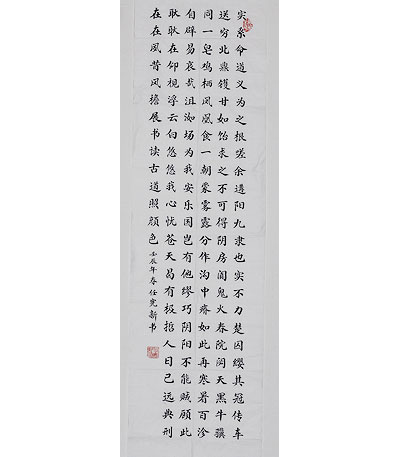 实系命道义为之根嗟余遘阳九隶也实不力楚囚缨其冠传车
送穷北鼎镬甘如饴求之不可得阴房阒鬼火春院閟天黑牛骥
同一皂鸡栖凤凰食一朝蒙雾露分作沟中瘠如此再寒暑百沴
自辟易哀哉沮洳场为我安乐国岂有他缪巧阴阳不能贼顾此
耿耿在仰视浮云白悠悠我心忧苍天曷有极哲人日已远典刑
在在夙昔风檐展书读古道照颜色 壬辰年春任宪新书